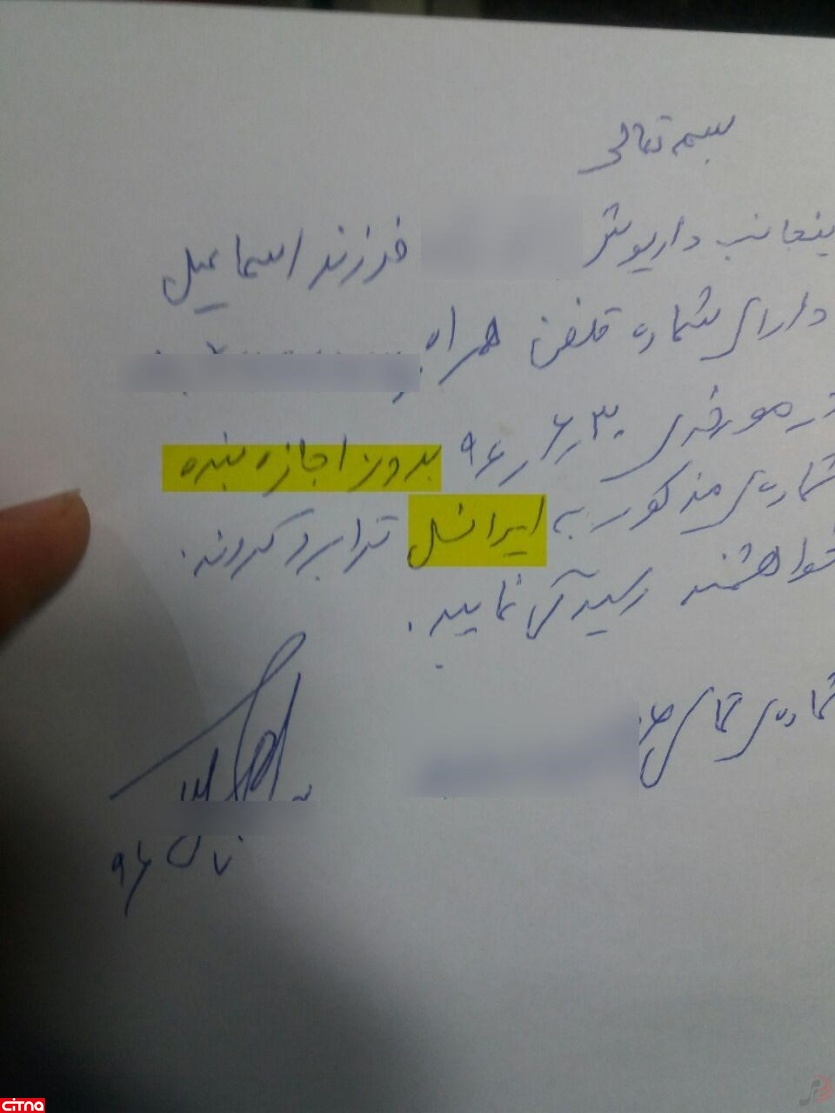 بسمه تعالی
ینجانب داریوش فرزند اسماعیل
دارای شماره تلفن همراه
در مورخه‌ی ۹۶٫۶٫۳۰ بدون اجازه بنده
شماره‌ی مذکور به ایرانسل ترابرد کردند.
خواهشمند رسیدگی نمایید.
شماره‌ی تماس
۹۶
CITNA